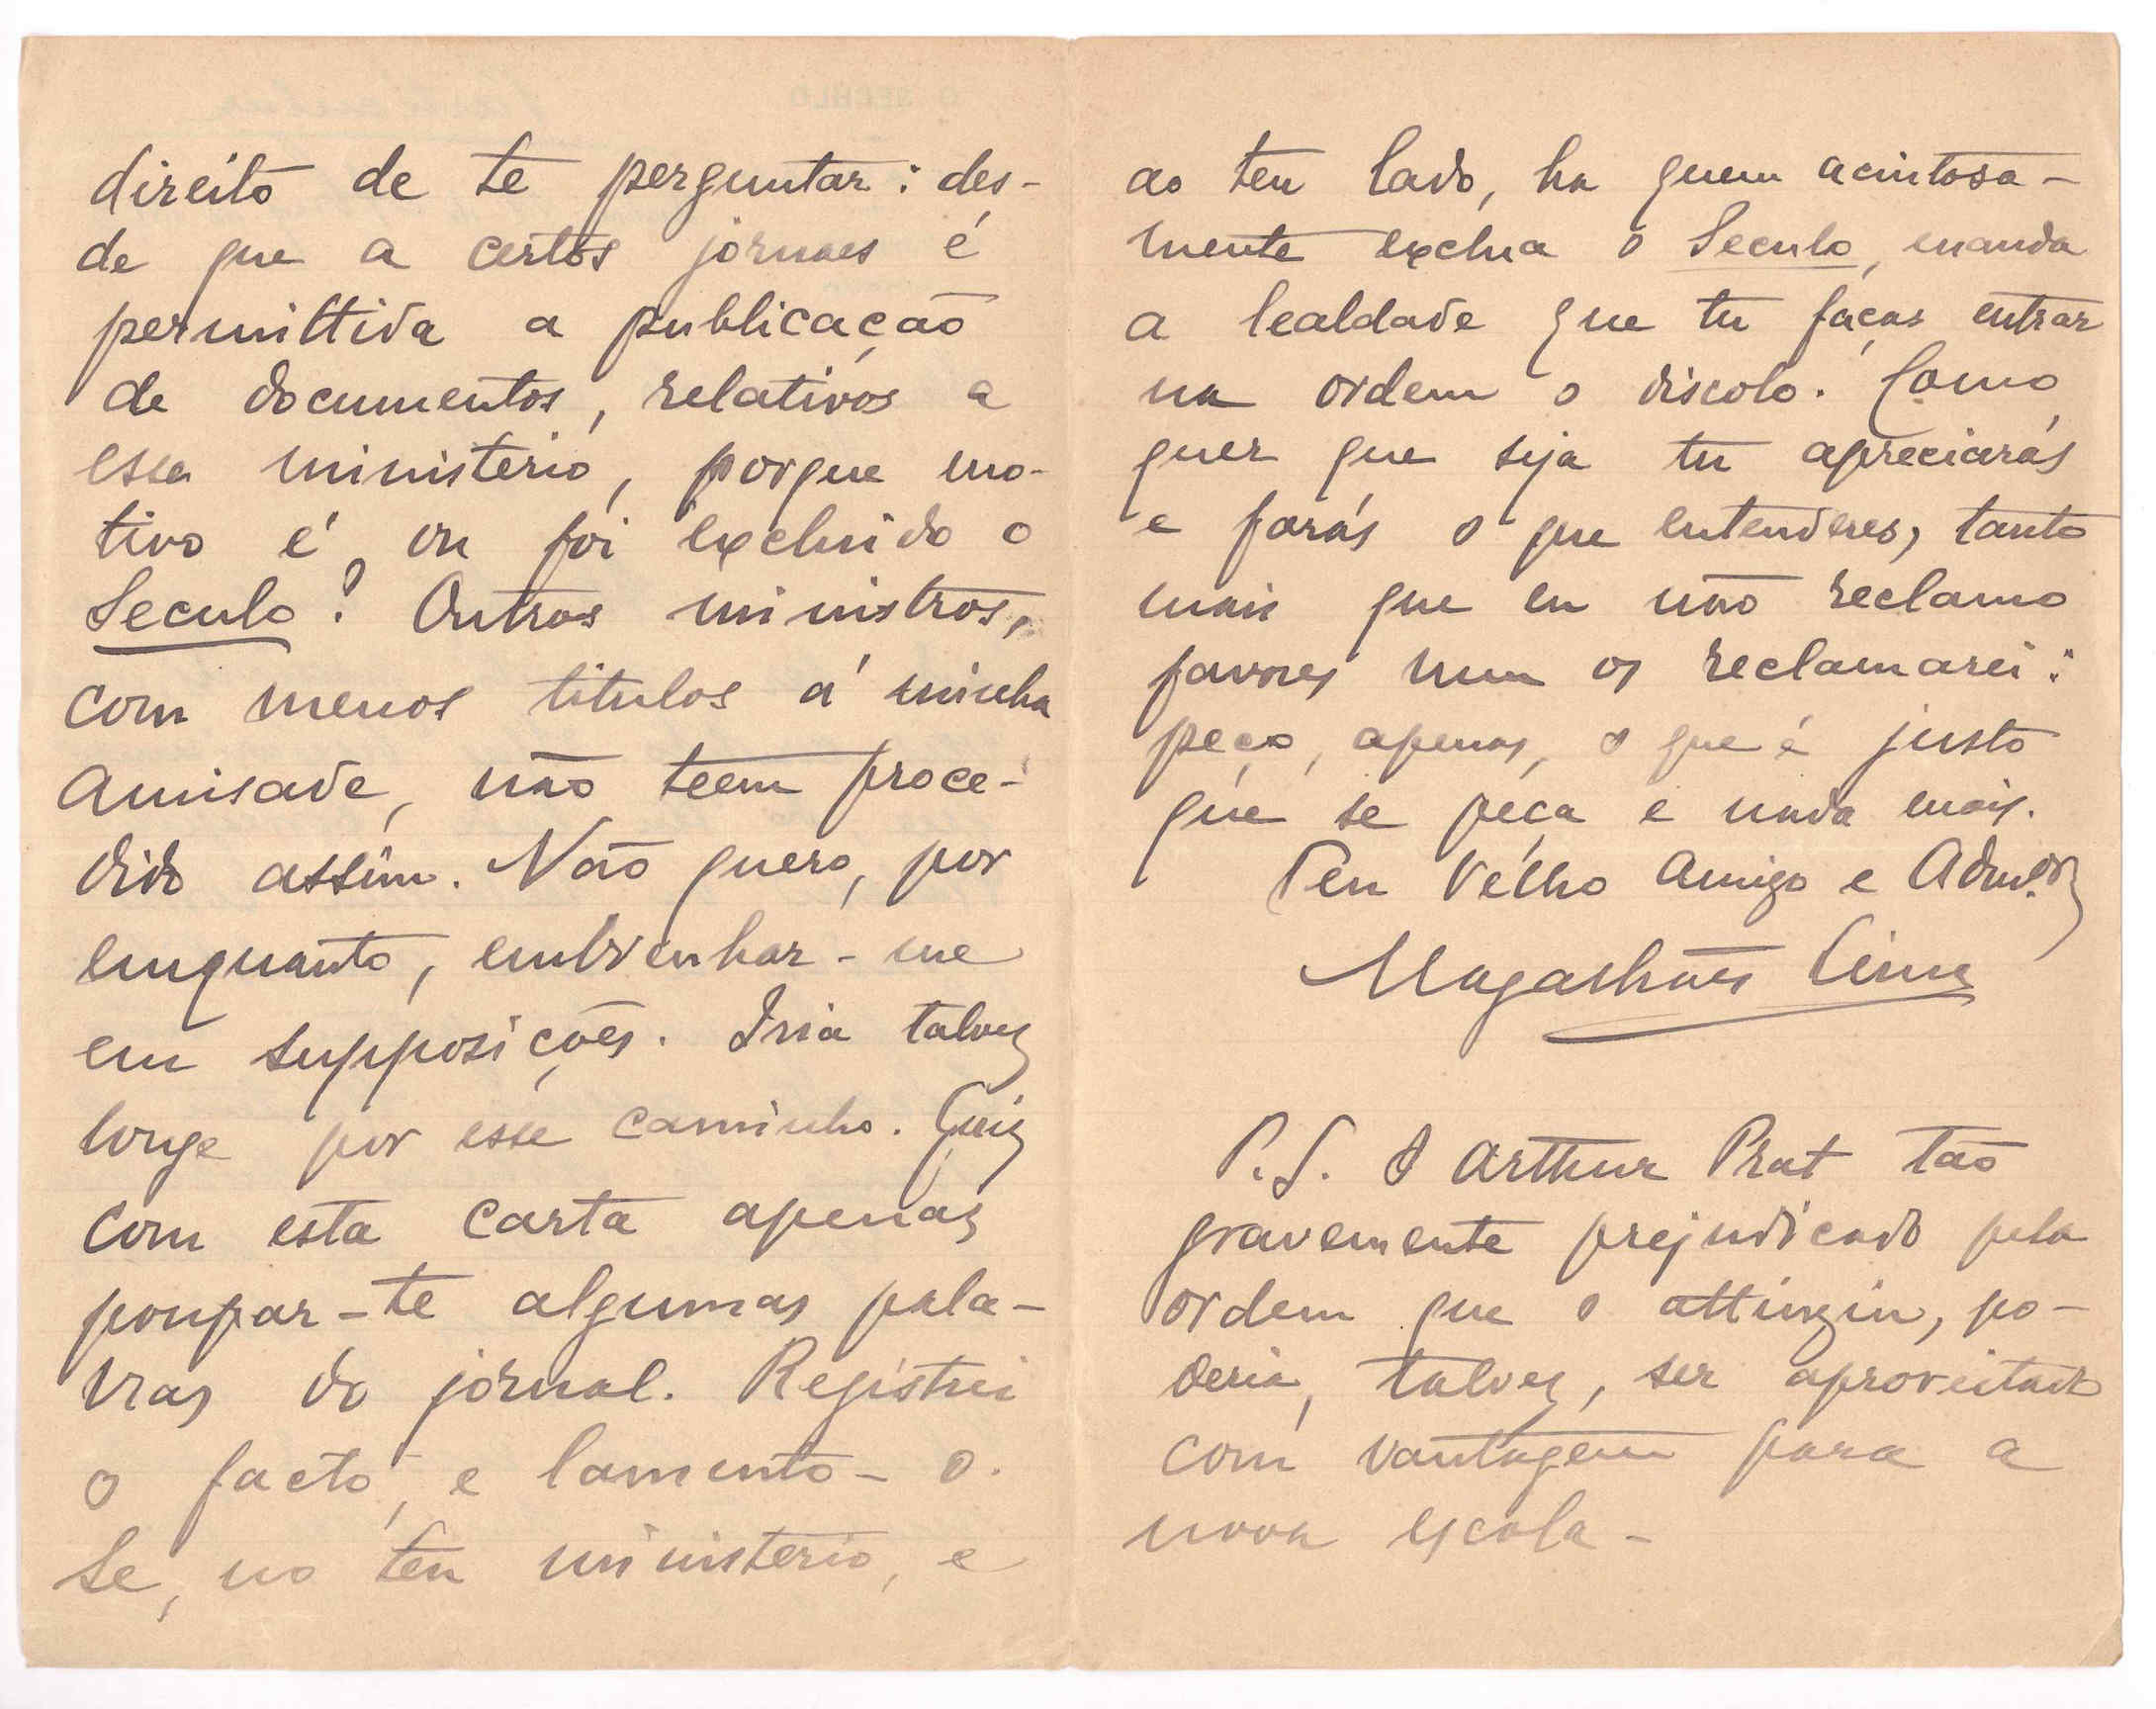 direito de te perguntar: des-
de que a certos jornaes é
permittida a publicação
de documentos, relativos a
esse ministerio, porque mo-
tivo é, ou foi excluido o
Seculo? Outros ministros,
com menos titulos á minha
amisade, não teem proce-
dido assim. Não quero, por
emquanto, embrenhar-me
em supposições. Iria talvez
longe por esse caminho. Quiz
com esta carta apenas
poupar-te algumas pala-
vras do jornal. Registrei
o facto, e lamento-o.
Se, no teu ministerio, e
ao teu lado, ha quem acintosa-
mente exclua o Seculo, manda
a lealdade que tu faças entrar
na ordem o discolo. Como
quer que seja tu apreciarás
e farás o que entenderes, tanto
mais que eu não reclamo
favores nem os reclamarei:
peço, apenas, o que é justo
que se peça e nada mais.
Teu Velho Amigo e Admor
Magalhães Lima
P.S. O Arthur Prat tão
gravemente prejudicado pela
ordem que o attingiu, po-
deria, talvez, ser aproveitado
com vantagem para a
nova escola-